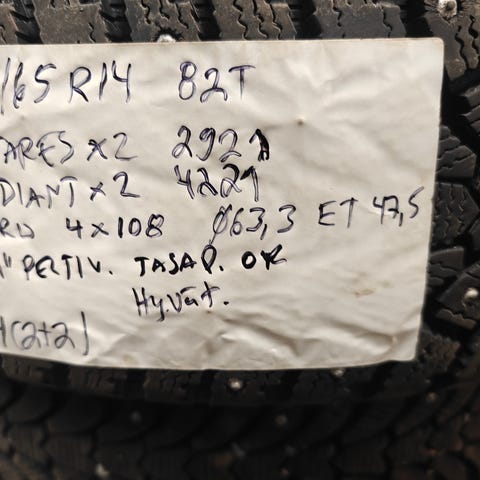 165R14 82T
ARES x2 2921
DIANT x2 4221
RD 4x108 Ø63,3 ET 47,5
" PELTIV. TASAP. OK
Hyvät.
(2+2)